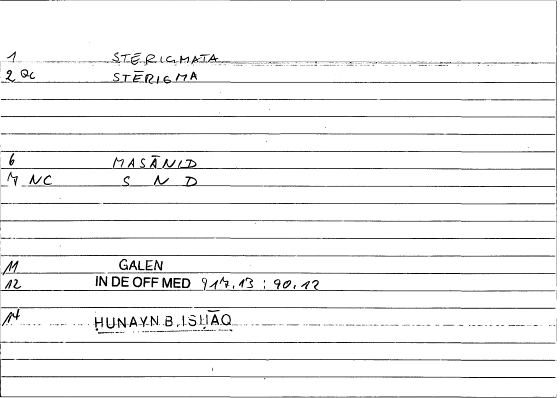 1 STĒRIGMATA
2 QC STĒRIGMA
6 MASĀNID
7 NC S N D
11 GALEN
12 IN DE OFF MED 917,13 : 90,12
14 ḤUNAYN B. ISḤĀQ